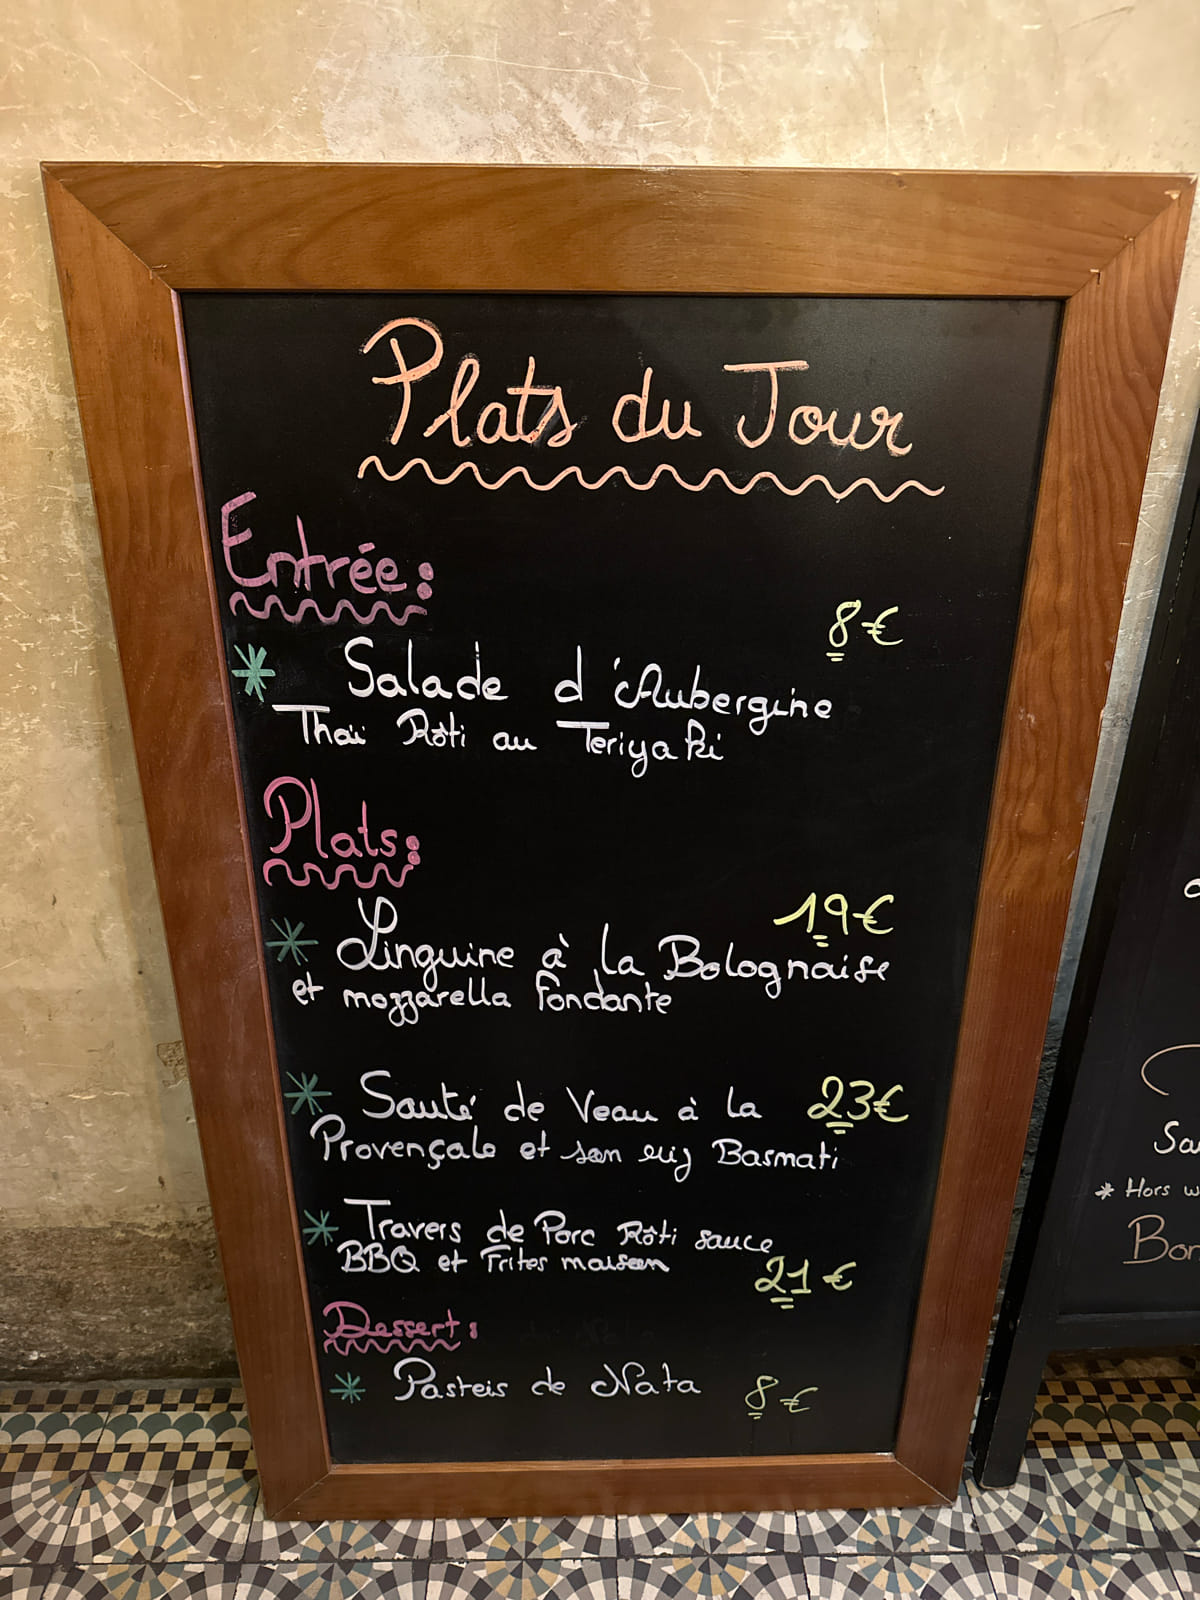 Plats du Jour
Entrée :
8€
* Salade d'Aubergine
Thaï Rôti au Teriyaki
Plats :
19€
* Linguine à la Bolognaise
et mozzarella fondante
* Sauté de Veau à la 23€
Provençale et son riz Basmati
* Travers de Porc Rôti sauce
BBQ et Frites maison
21€
Dessert :
* Pasteis de Nata 8€
* Hors